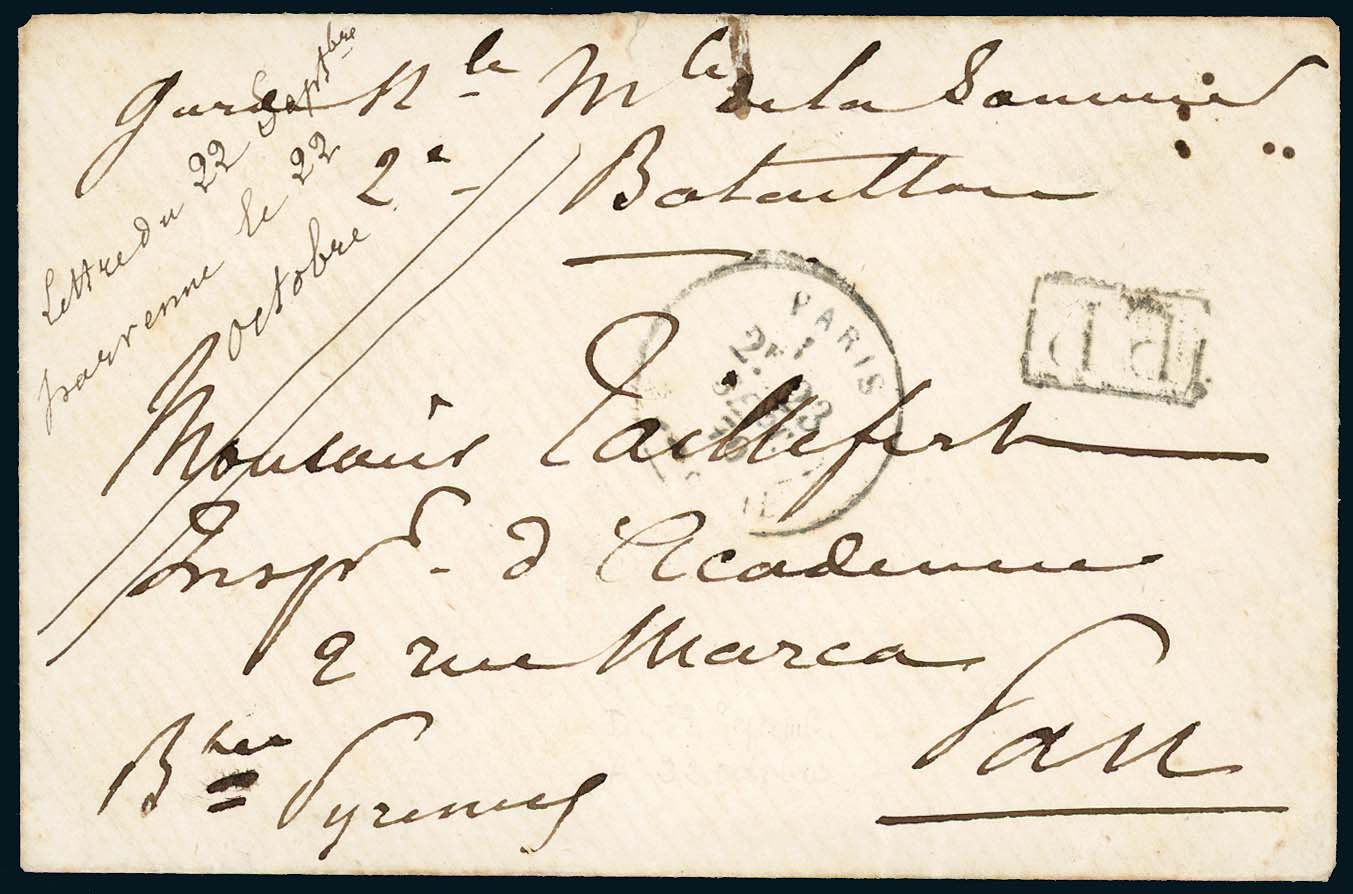 Garde Nle Mle de la Somme
2e Bataillon
Lettre du 22 Septbre
parvenue le 22
octobre
PARIS
2E
23
SEPT
70
P.P.
Monsieur Taillefert
Inspr d'Academie
2 rue Marca
Pau
Bses Pyrenees